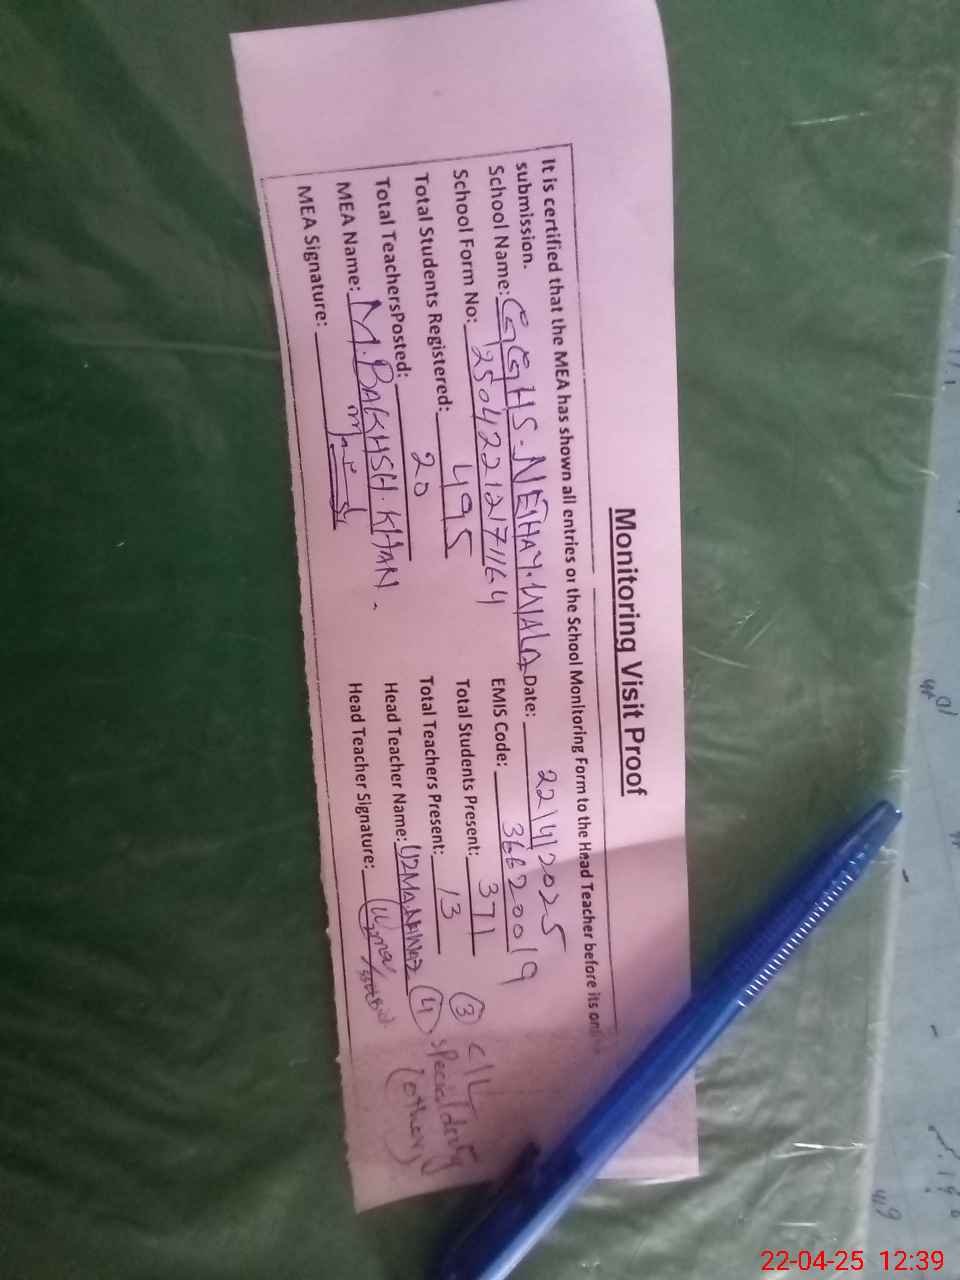 Monitoring Visit Proof
It is certified that the MEA has shown all entries or the School Monitoring Form to the Head Teacher before its
submission.
School Name: GGHS. NEHAY. WALA Date: 22/4/2025
School Form No: 25042212171164 EMIS Code: 36620019
Total Students Registered: 495 Total Students Present: 371
Total TeachersPosted: 20 Total Teachers Present: 13 (3) C/L
MEA Name: M. BAKHSH. KHAN. Head Teacher Name: (4) special duty
MEA Signature: Head Teacher Signature: (other)
22-04-25 12:39